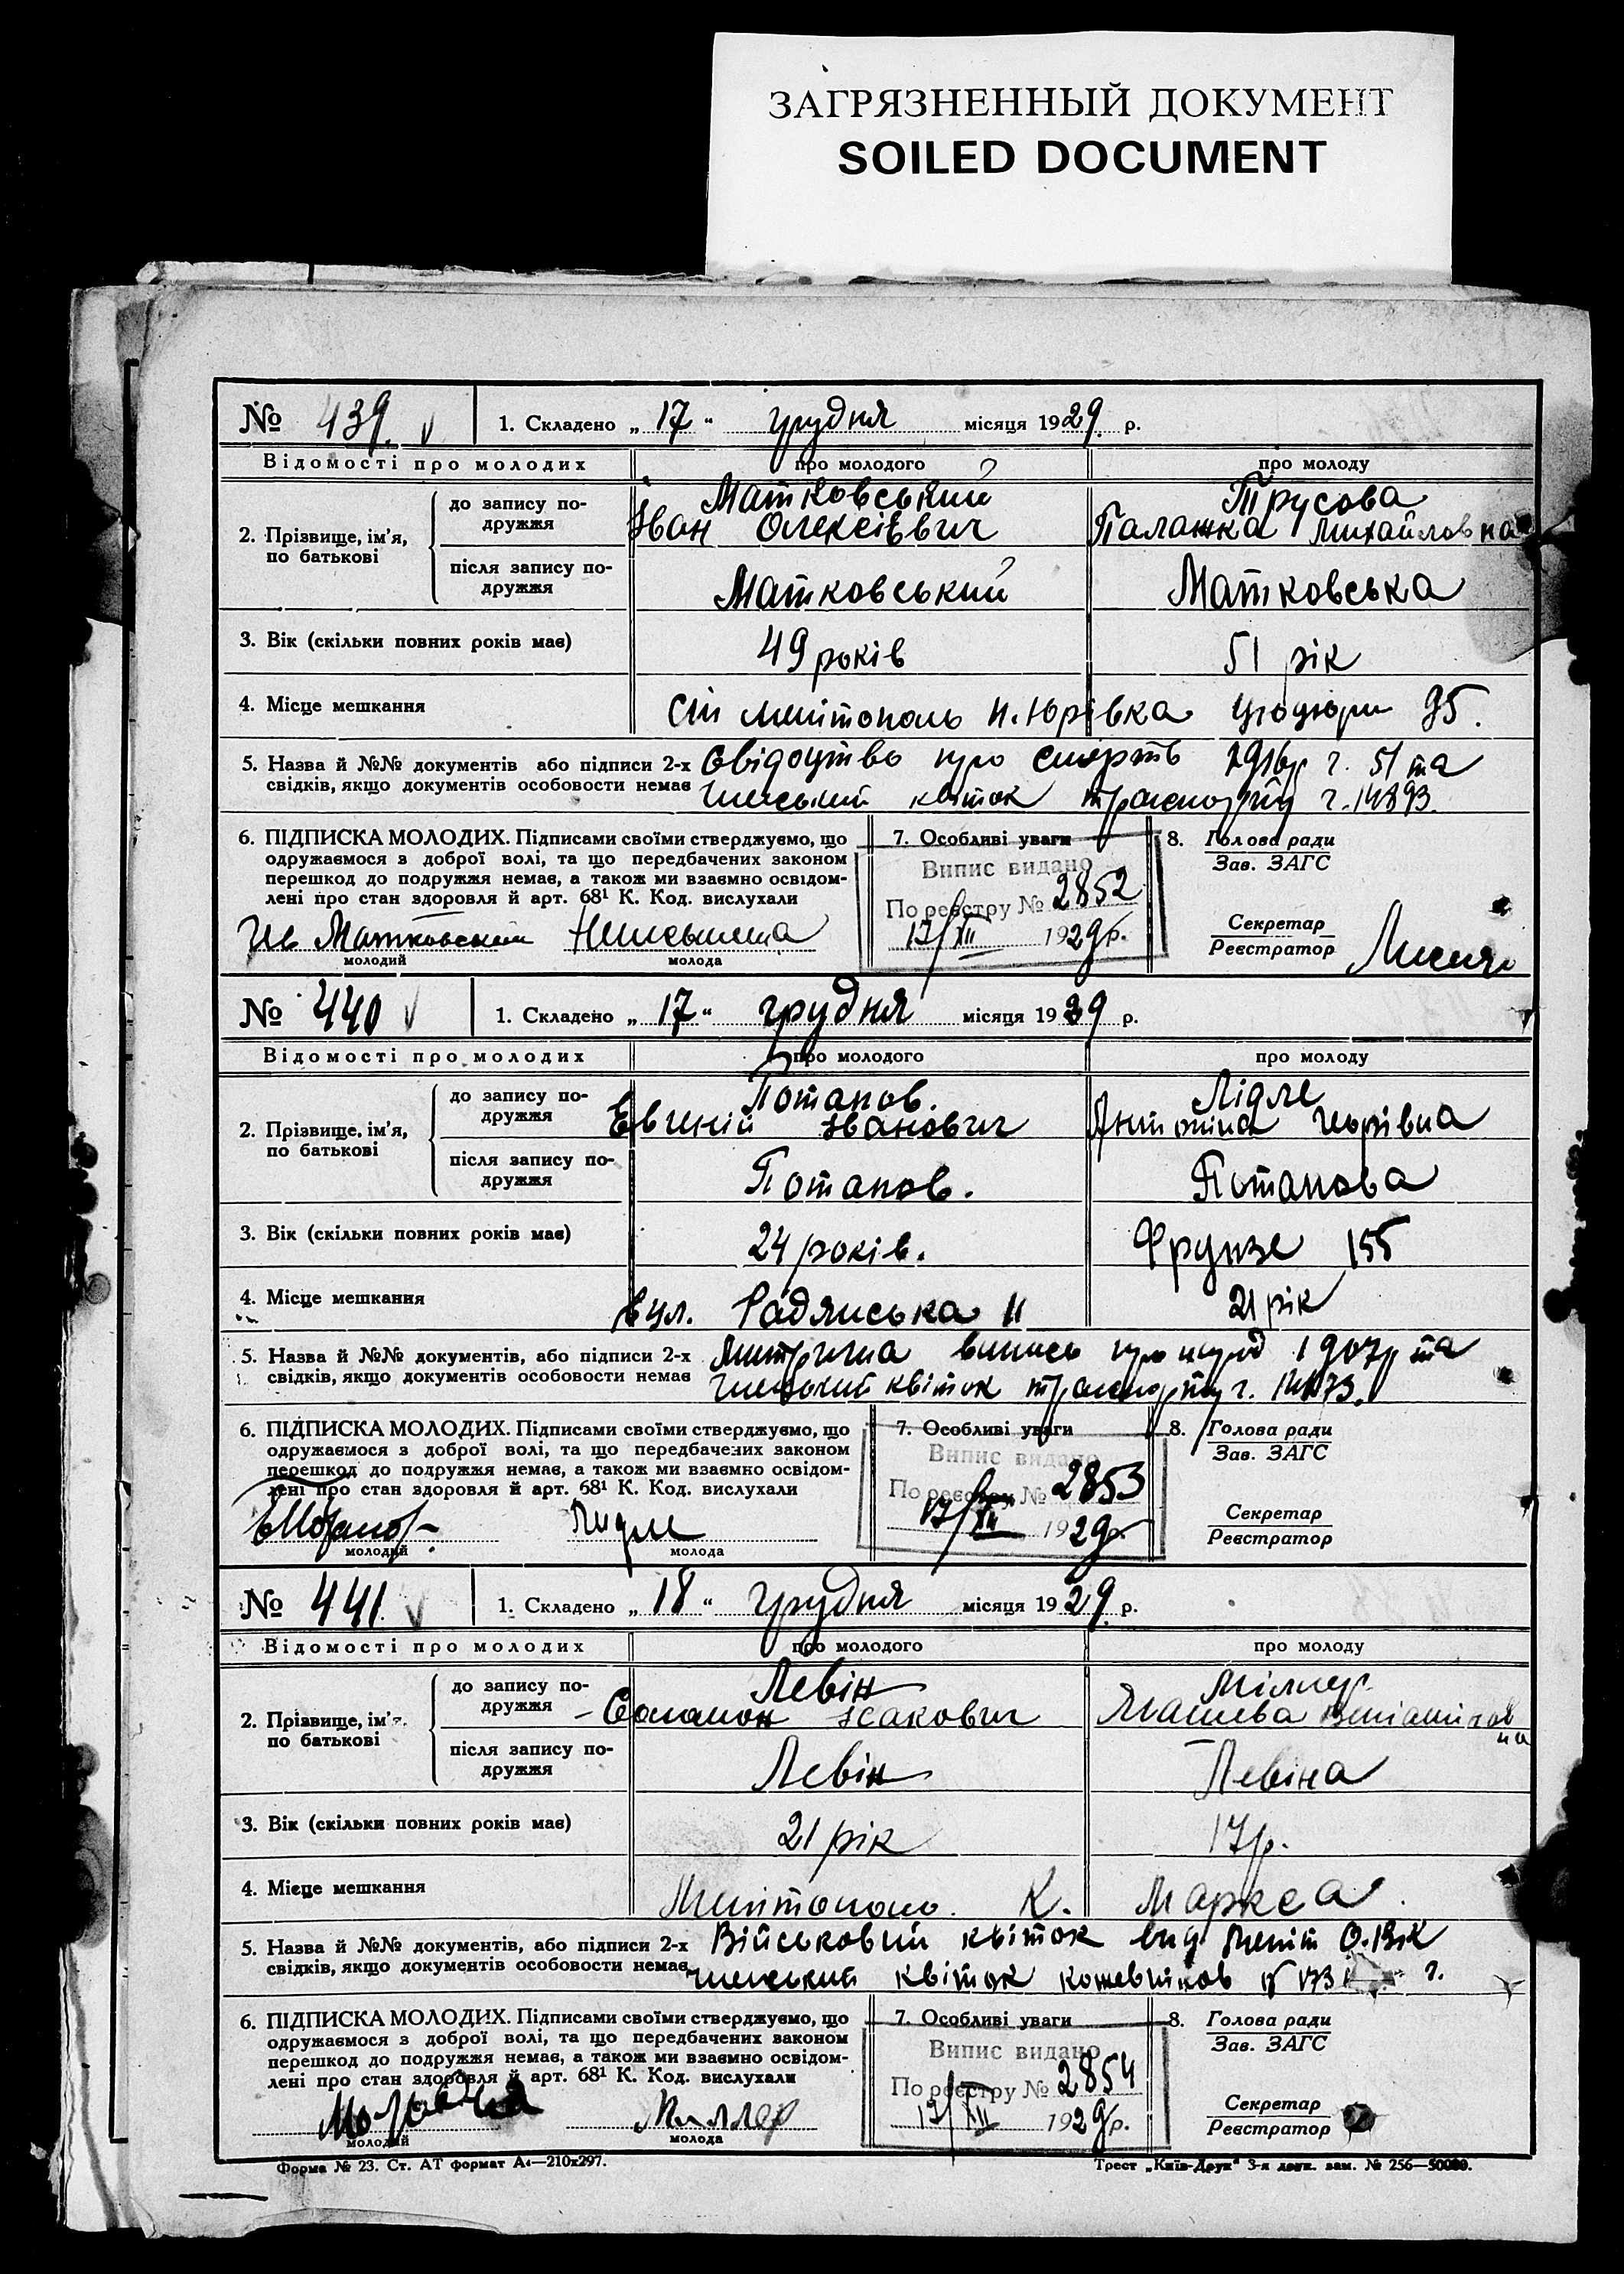 ЗАГРЯЗНЕННЫЙ ДОКУМЕНТ
SOILED DOCUMENT
№ 439. 1. Складено „17“ грудня місяця 1929 р.
Відомості про молодих про молодого про молоду
2. Прізвище, ім’я, по батькові
до запису подружжя
Матковський
Іван Олексієвич
Трусова
Палажка Михайловна
після запису подружжя
Матковський Матковська
3. Вік (скільки повних років має) 49 років 51 рік
4. Місце мешкання Н. Юрівка 95.
5. Назва й №№ документів або підписи 2-х Свідоцтво про смерть г. 51 та
свідків, якщо документів особовости немає квіток
6. ПІДПИСКА МОЛОДИХ. Підписами своїми стверджуємо, що
одружаємося з доброї волі, та що передбачених законом
перешкод до подружжя немає, а також ми взаємно освідом-
лені про стан здоровля й арт. 68¹ К. Код. вислухали
Матковский
молодий молода
7. Особливі уваги
Випис видано
По реєстру № 2852
17/XII 1929р.
8. Голова ради
Зав. ЗАГС
Секретар
Реєстратор
№ 440 1. Складено „17“ грудня місяця 1929 р.
Відомості про молодих про молодого про молоду
2. Прізвище, ім’я, по батькові
до запису подружжя
Потапов.
Евгеній Іванович
Лідле
Антоніна
після запису подружжя
Потапов. Потапова
3. Вік (скільки повних років має) 24 років. Фрунзе 155
4. Місце мешкання вул. Радянська 11 21 рік
5. Назва й №№ документів, або підписи 2-х Метрична випись про 1907р та
свідків, якщо документів особовости немає квіток
6. ПІДПИСКА МОЛОДИХ. Підписами своїми стверджуємо, що
одружаємося з доброї волі, та що передбачених законом
перешкод до подружжя немає, а також ми взаємно освідом-
лені про стан здоровля й арт. 68¹ К. Код. вислухали
молодий молода
7. Особливі уваги
Випис видано
По реєстру № 2853
17/XII 1929р.
8. Голова ради
Зав. ЗАГС
Секретар
Реєстратор
№ 441. 1. Складено „18“ грудня місяця 1929 р.
Відомості про молодих про молодого про молоду
2. Прізвище, ім’я, по батькові
до запису подружжя
Левін
Соломон Ісакович
після запису подружжя
Левін Левіна
3. Вік (скільки повних років має) 21 рік 17р.
4. Місце мешкання Мелітополь. К. Маркса.
5. Назва й №№ документів, або підписи 2-х Військовий квіток вид Меліт О.ВК
свідків, якщо документів особовости немає квіток кожевників
6. ПІДПИСКА МОЛОДИХ. Підписами своїми стверджуємо, що
одружаємося з доброї волі, та що передбачених законом
перешкод до подружжя немає, а також ми взаємно освідом-
лені про стан здоровля й арт. 68¹ К. Код. вислухали
Миллер
молодий молода
7. Особливі уваги
Випис видано
По реєстру № 2854
17/XII 1929р.
8. Голова ради
Зав. ЗАГС
Секретар
Реєстратор
Форма № 23. Ст. АТ формат А₄—210х297. Трест „Київ-Друк“ 3-я друк. зам. № 256—50000.